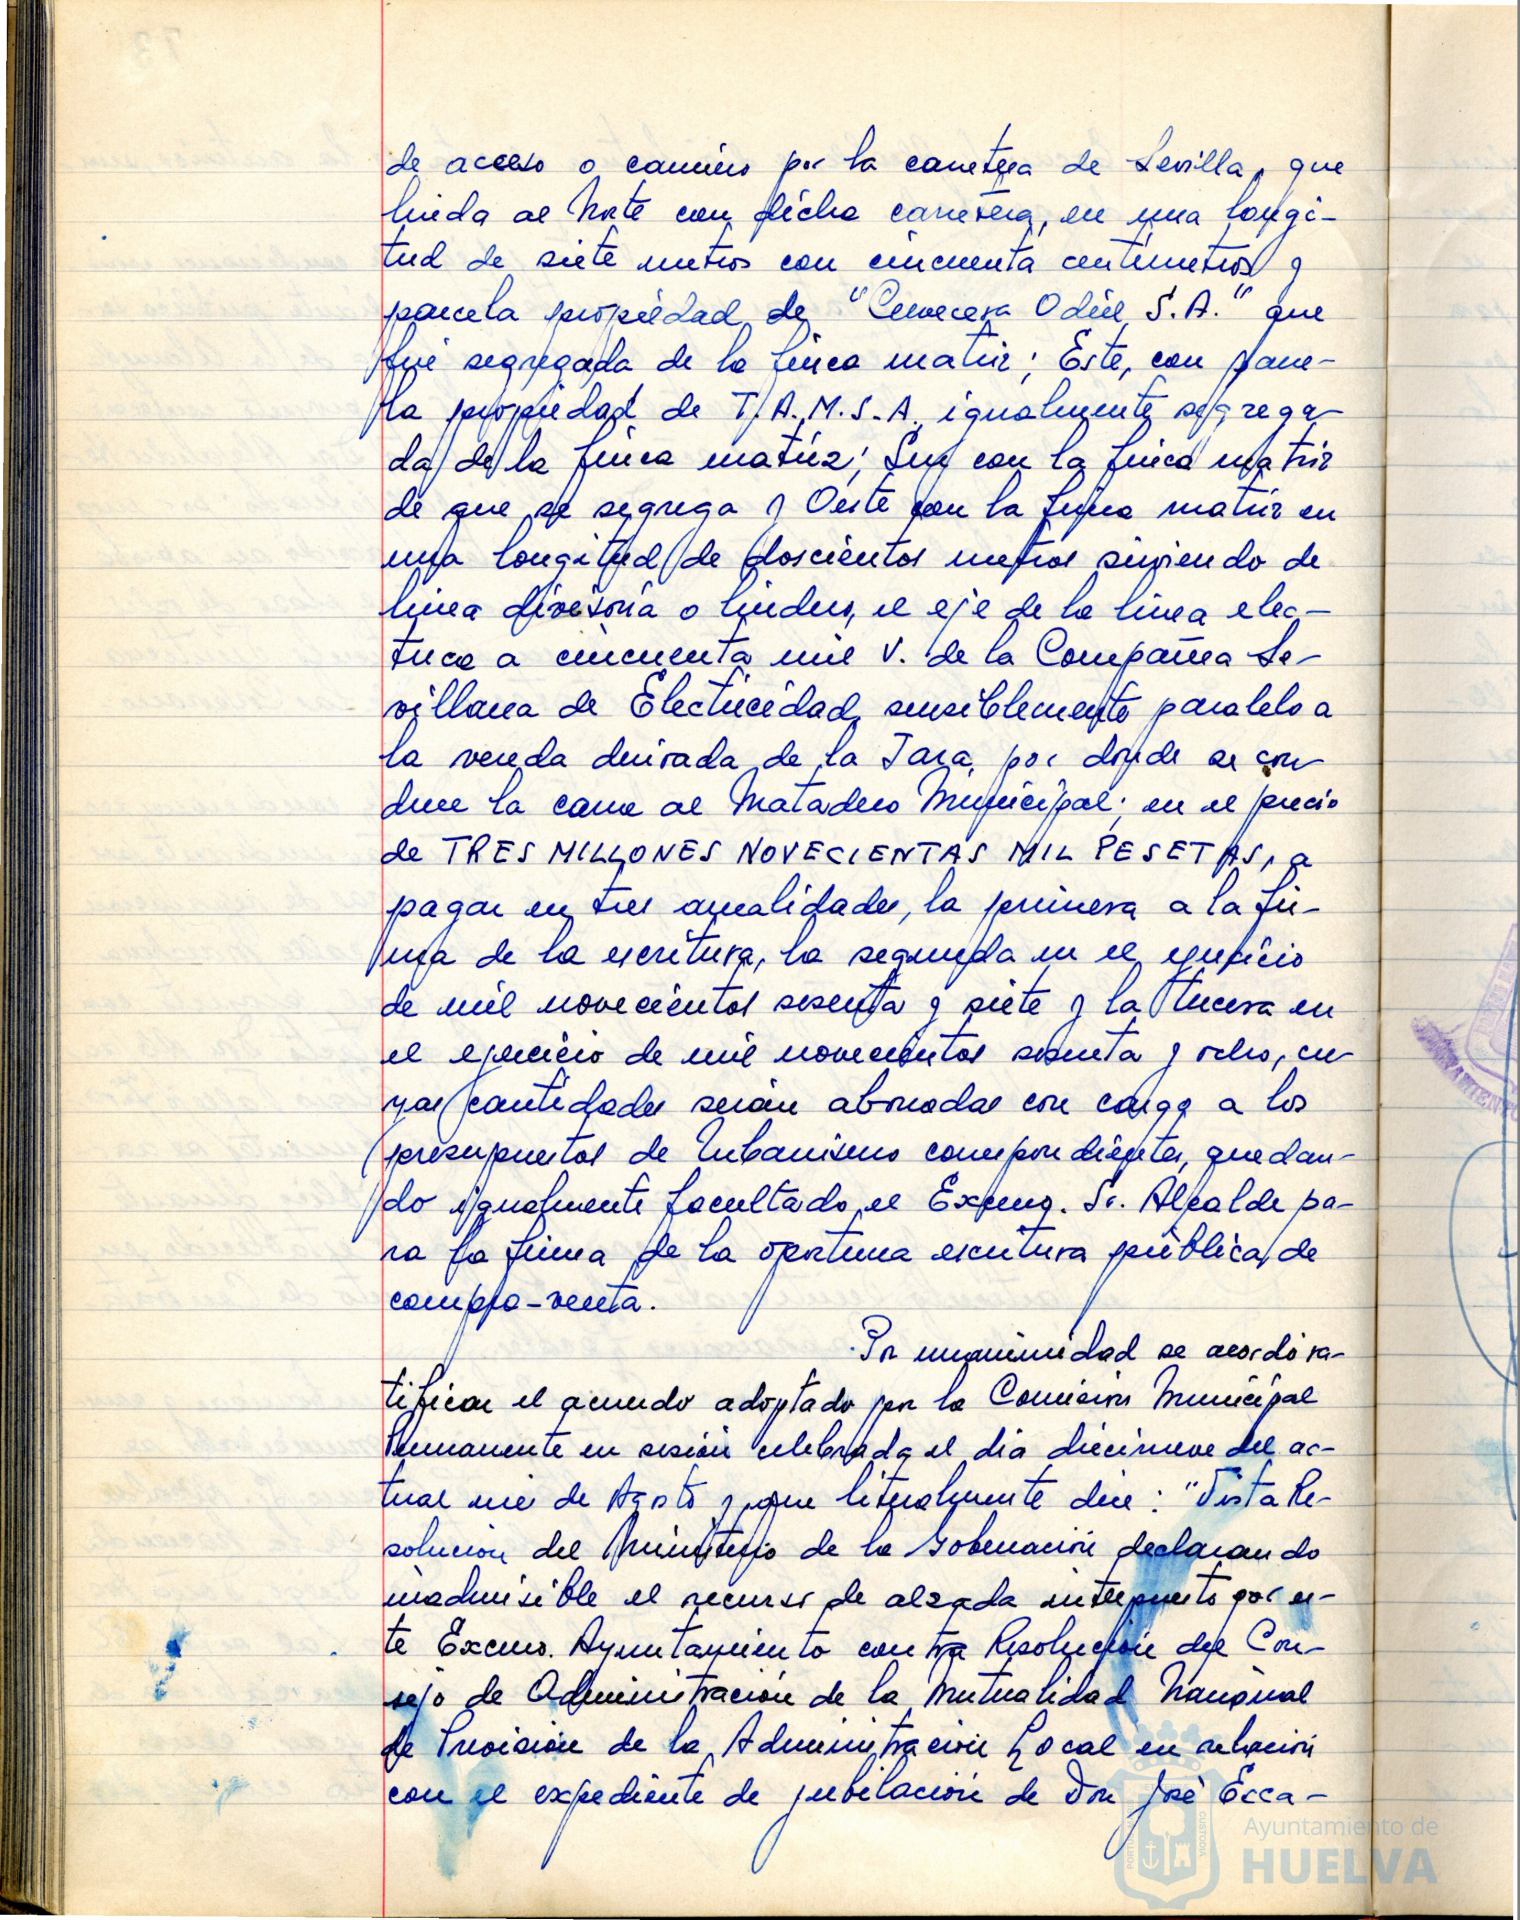 de acceso o camino por la carretera de Sevilla, que
linda al Norte con dicha carretera, en una longi-
tud de siete metros con cincuenta centimetros y
parcela propiedad de "Cervecera Odiel, S.A." que
fué segregada de la finca matriz; Este, con parce-
la propiedad de T.A.M.S.A. igualmente segrega-
da de la finca matriz; Sur con la finca matriz
de que se segrega y Oeste con la finca matriz en
una longitud de doscientos metros sirviendo de
linea divisoria o lindero, el eje de la linea elec-
trica a cincuenta mil V. de la Compañia Se-
villana de Electricidad, sensiblemente paralelo a
la vereda derivada de la Jara, por donde se con-
duce la carne al Matadero Municipal; en el precio
de TRES MILLONES NOVECIENTAS MIL PESETAS, a
pagar en tres anualidades, la primera a la fir-
ma de la escritura, la segunda en el ejercicio
de mil novecientos sesenta y siete y la tercera en
el ejercicio de mil novecientos sesenta y ocho, cu-
yas cantidades serán abonadas con cargo a los
presupuestos de Urbanismo correspondientes, quedan-
do igualmente facultado el Excmo. Sr. Alcalde pa-
ra la firma de la oportuna escritura pública de
compra-venta.
Por unanimidad se acordó ra-
tificar el acuerdo adoptado por la Comisión Municipal
Permanente en sesión celebrada el dia diecinueve del ac-
tual mes de Agosto y que literalmente dice: "Vista Re-
solución del Ministerio de la Gobernación declarando
inadmisible el recurso de alzada interpuesto por es-
te Excmo. Ayuntamiento contra Resolución del Con-
sejo de Administración de la Mutualidad Nacional
de Previsión de la Administración Local en relación
con el expediente de jubilación de Don José Ecca-
Ayuntamiento de
HUELVA